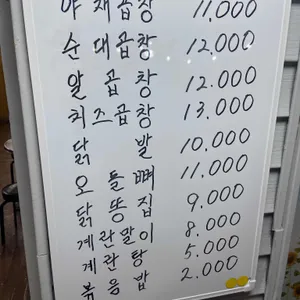 야채곱창 11,000
순대곱창 12,000
알곱창 12.000
치즈곱창 13,000
닭발 10,000
오돌뼈 11.000
닭똥집 9.000
계란말이 8.000
계란탕 5.000
볶음밥 2.000